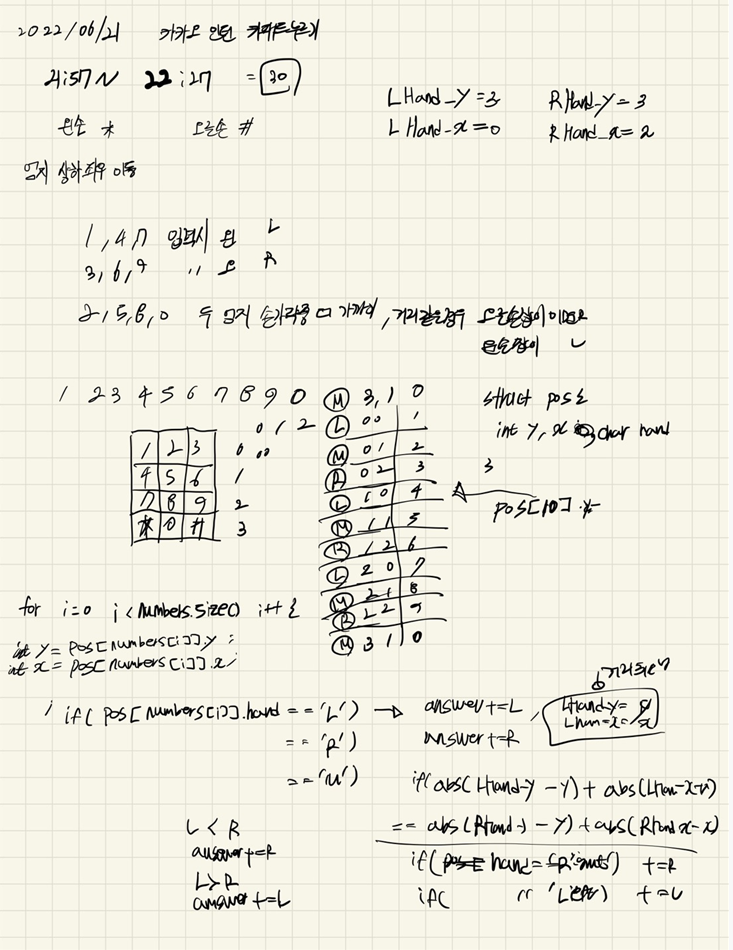 2022/06/21 카카오 인턴 키패드누르기
21:57 ~ 22:27 = 30
LHand_Y = 3 RHand_Y = 3
LHand_x = 0 RHand_x = 2
왼손 * 오른손 #
엄지 상하좌우 이동
1, 4, 7 입력시 왼 L
3, 6, 9 〃 오 R
2, 5, 8, 0 두 엄지 손가락중 더 가까이, 거리같은경우 오른손잡이이면 R
왼손잡이 L
1 2 3 4 5 6 7 8 9 0
0 1 2
1 2 3 0 00
4 5 6 1
7 8 9 2
* 0 # 3
M 3,1 0
L 00 1
M 01 2
R 02 3
L 10 4
M 11 5
R 12 6
L 20 7
M 21 8
R 22 9
M 31 0
struct pos {
int y, x char hand
}
pos[10]
for i=0 i < numbers.size() i++ {
int y = pos[numbers[i]].y ;
int x = pos[numbers[i]].x ;
if( pos[numbers[i]].hand == 'L') → answer += L
== 'R') answer += R
== 'M')
LHand-y = y
LHan-x = x
if( abs(LHand-y - y) + abs(LHan-x-x)
== abs(RHand-y - y) + abs(RHand x-x)
if( hand = 'Right') += R
if( 〃 'Left') += L
L < R
answer += R
L > R
answer += L